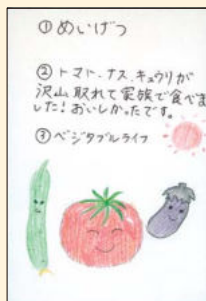 ①めいげつ
②トマト、ナス、キュウリが
沢山取れて家族で食べま
した！おいしかったです。
③ベジタブルライフ